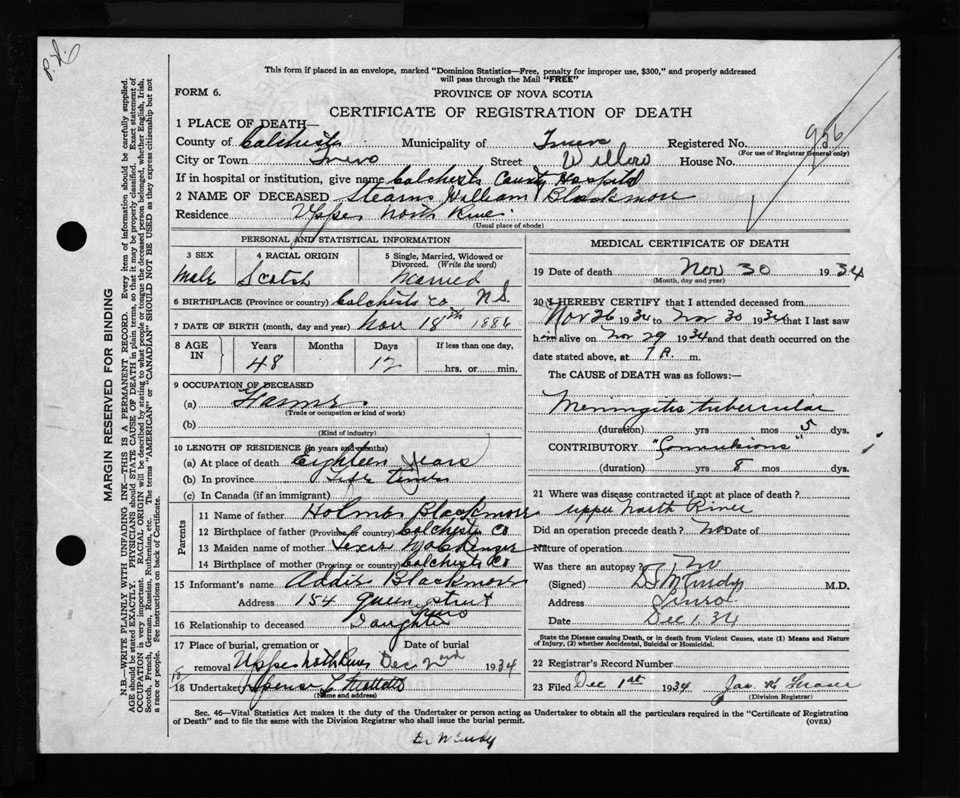 P.D.
This form if placed in an envelope, marked "Dominion Statistics—Free, penalty for improper use, $300," and properly addressed
will pass through the Mail "FREE"
FORM 6.
PROVINCE OF NOVA SCOTIA
CERTIFICATE OF REGISTRATION OF DEATH
956
1 PLACE OF DEATH—
County of Colchester Municipality of Truro Registered No.
(For use of Registrar General only)
City or Town Truro Street Willow House No.
If in hospital or institution, give name Colchester County Hospital
2 NAME OF DECEASED Stearns William Blackmore
Residence Upper North River
(Usual place of abode)
PERSONAL AND STATISTICAL INFORMATION
3 SEX
4 RACIAL ORIGIN
5 Single, Married, Widowed or
Divorced. (Write the word)
Male Scotch Married
6 BIRTHPLACE (Province or country) Colchester Co N.S.
7 DATE OF BIRTH (month, day and year) Nov 18th 1886
8 AGE
IN
Years Months Days If less than one day,
48 12 hrs. or min.
9 OCCUPATION OF DECEASED
(a) Farmer
(Trade or occupation or kind of work)
(b)
(Kind of industry)
10 LENGTH OF RESIDENCE (in years and months)
(a) At place of death Eighteen years
(b) In province Life time
(c) In Canada (if an immigrant)
Parents
11 Name of father Holmes Blackmore
12 Birthplace of father (Province or country) Colchester Co
13 Maiden name of mother McKenzie
14 Birthplace of mother (Province or country) Colchester Co
15 Informant's name Addie Blackmore
Address 154 Queen Street
Truro
16 Relationship to deceased Daughter
17 Place of burial, cremation or Date of burial
removal Upper North River Dec 2nd 1934
18 Undertaker
(Name and address)
MEDICAL CERTIFICATE OF DEATH
19 Date of death Nov 30 1934
(Month, day and year)
20 I HEREBY CERTIFY that I attended deceased from
Nov 26 1934 to Nov 30 1934 that I last saw
him alive on Nov 29 1934 and that death occurred on
date stated above, at 7 A. m.
The CAUSE of DEATH was as follows:—
Meningitis tubercular
(duration) yrs mos 5 dys.
CONTRIBUTORY "Convulsions"
(duration) yrs 8 mos dys.
21 Where was disease contracted if not at place of death?
Upper North River
Did an operation precede death? No Date of
Nature of operation
Was there an autopsy? No
(Signed) M.D.
Address Truro
Date Dec 1. 34
State the Disease causing Death, or in death from Violent Causes, state (1) Means and Nature
of Injury, (2) whether Accidental, Suicidal or Homicidal.
22 Registrar's Record Number
23 Filed Dec 1st 1934 Jas K Fraser
(Division Registrar)
Sec. 46—Vital Statistics Act makes it the duty of the Undertaker or person acting as Undertaker to obtain all the particulars required in the "Certificate of Registration
of Death" and to file the same with the Division Registrar who shall issue the burial permit.
(OVER)
MARGIN RESERVED FOR BINDING
N.B.—WRITE PLAINLY WITH UNFADING INK—THIS IS A PERMANENT RECORD. Every item of information should be carefully supplied.
AGE should be stated EXACTLY. PHYSICIANS should STATE CAUSE OF DEATH in plain terms, so that it may be properly classified. Exact statement of
OCCUPATION is very important. RACIAL ORIGIN will be described by stating to what people or race the deceased person belonged, whether English, Irish,
Scotch, French, German, Russian, Ruthenian, etc. The terms "AMERICAN" or "CANADIAN" SHOULD NOT BE USED as they express citizenship but not
a race or people. See instructions on back of Certificate.